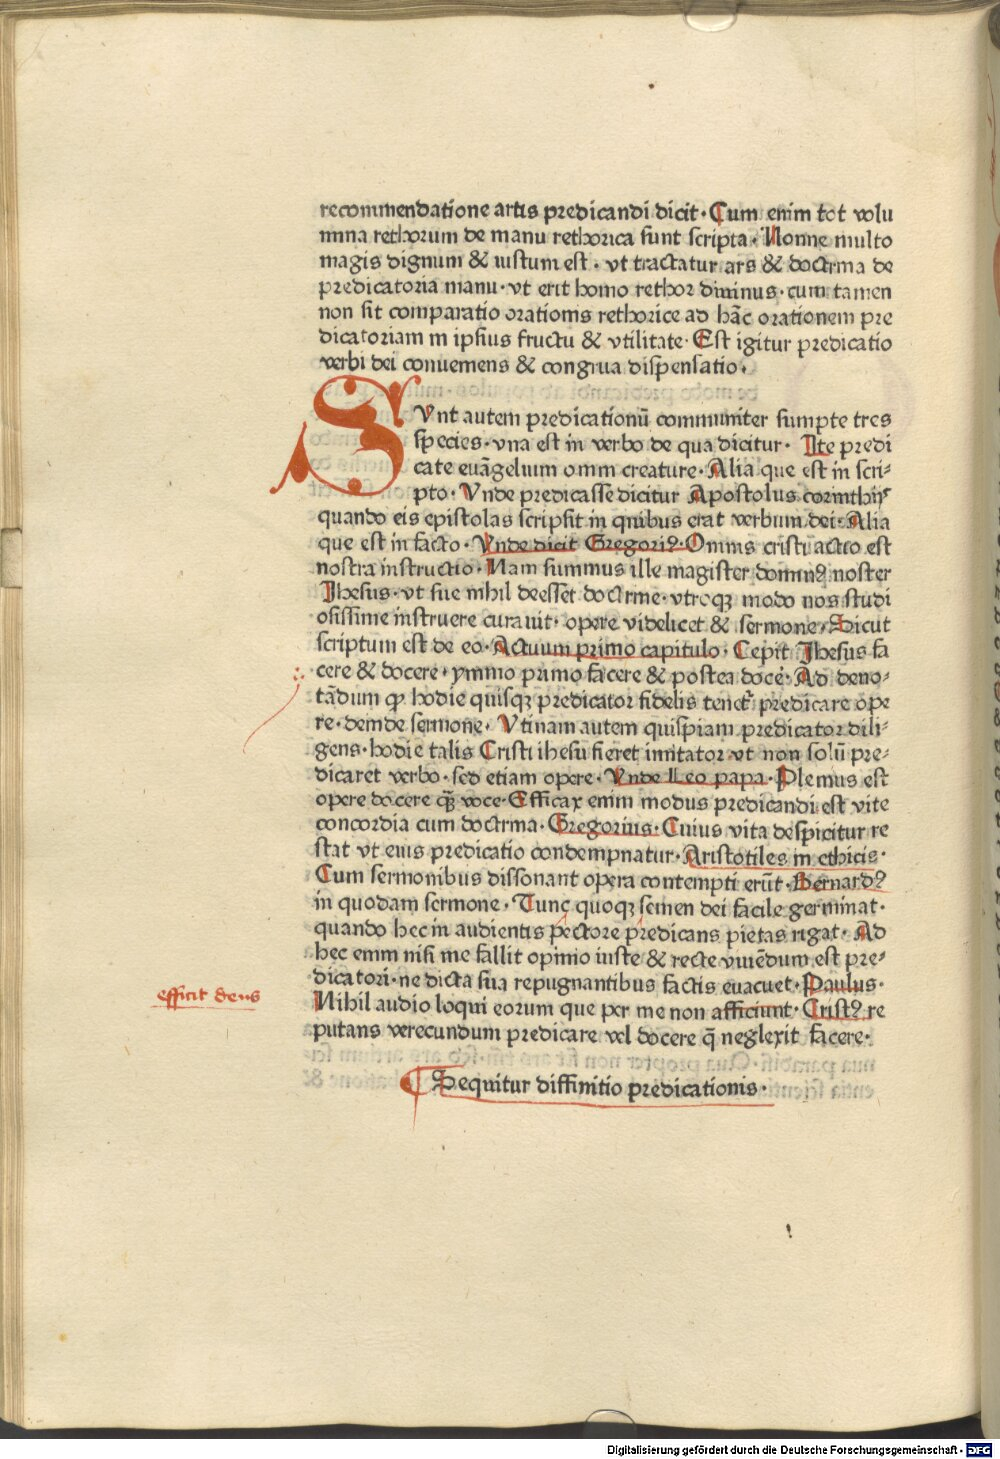 recommendatione artis predicandi dicit· Cum enim tot volu
mina rethorum de manu rethorica sunt scripta· Nonne multo
magis dignum & iustum est· vt tractatur ars & doctrina de
predicatoria manu· vt erit homo rethor diuinus· cum tamen
non sit comparatio orationis rethorice ad hāc orationem pre
dicatoriam in ipsius fructu & vtilitate· Est igitur predicatio
verbi dei conueniens & congrua dispensatio·
SVnt autem predicationū communiter sumpte tres
species· vna est in verbo de qua dicitur· Ite predi
cate euāgelium omni creature· Alia que est in scri-
pto· Vnde predicasse dicitur Apostolus corinthijs
quando eis epistolas scripsit in quibus erat verbum dei· Alia
que est in facto· Vnde dicit Gregoriꝰ· Omnis cristi actio est
nostra instructio· Nam summus ille magister dominꝰ noster
Jhesus· vt sue nihil deesset doctrine· vtroqꝫ modo nos studi
osissime instruere curauit· opere videlicet & sermone· Sicut
scriptum est de eo· Actuum primo capitulo· Cepit Jhesus fa
cere & docere· ymmo primo facere & postea docē· Ad deno-
tādum ꝙ hodie quisqꝫ predicator fidelis tenet̄ predicare ope
re· deinde sermone· Vtinam autem quispiam predicator dili-
gens· hodie talis Cristi ihesu fieret imitator vt non solū pre-
dicaret verbo· sed etiam opere· Vnde Leo papa· Plenius est
opere docere qꝫ̄ voce· Efficax enim modus predicandi est vite
concordia cum doctrina· Gregorius· Cuius vita despicitur re
stat vt eius predicatio condempnatur· Aristotiles in ethicis·
Cum sermonibus dissonant opera contempti erūt· Bernardꝰ
in quodam sermone· Tunc quoqꝫ semen dei facile germinat·
quando hec in audientis pectore predicans pietas rigat· Ad
hec enim nisi me fallit opinio iuste & recte viuēdum est pre-
dicatori· ne dicta sua repugnantibus factis euacuet· Paulus·
efficit deus
Nihil audio loqui eorum que per me non afficiunt· Cristꝰ re
putans verecundum predicare vel docere q̄ neglexit facere·
Sequitur diffinitio predicationis·
Digitalisierung gefördert durch die Deutsche Forschungsgemeinschaft - DFG